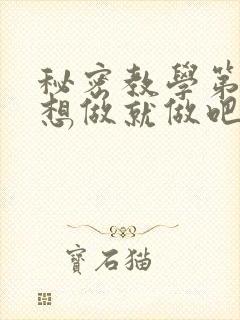 秘密教學第
想做就做吧
寶石猫